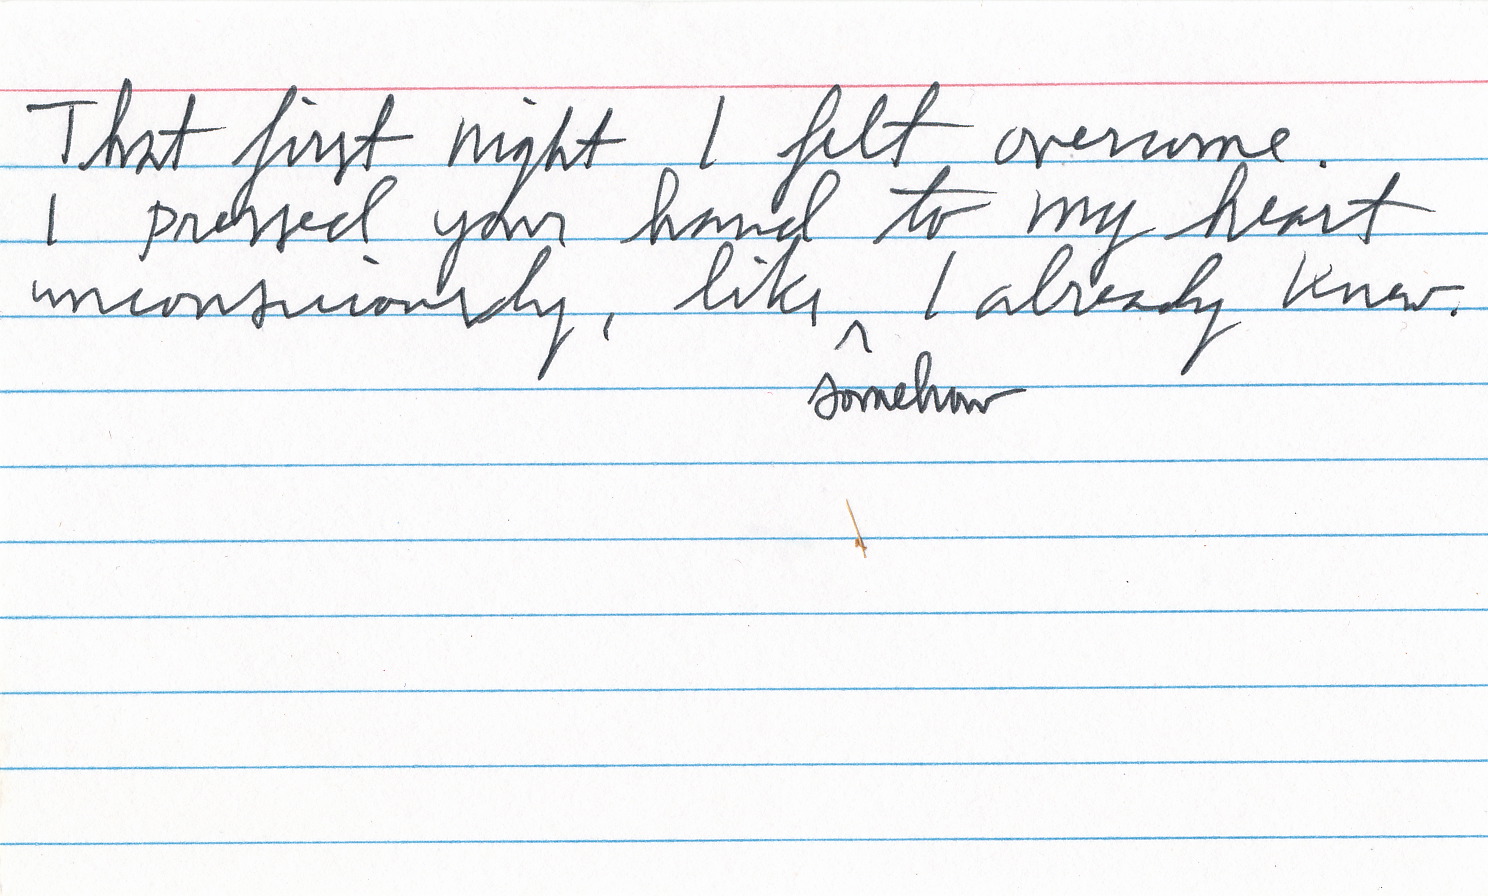 That first night I felt overcome.
I pressed your hand to my heart
unconsciously, like ^ I already knew.
somehow